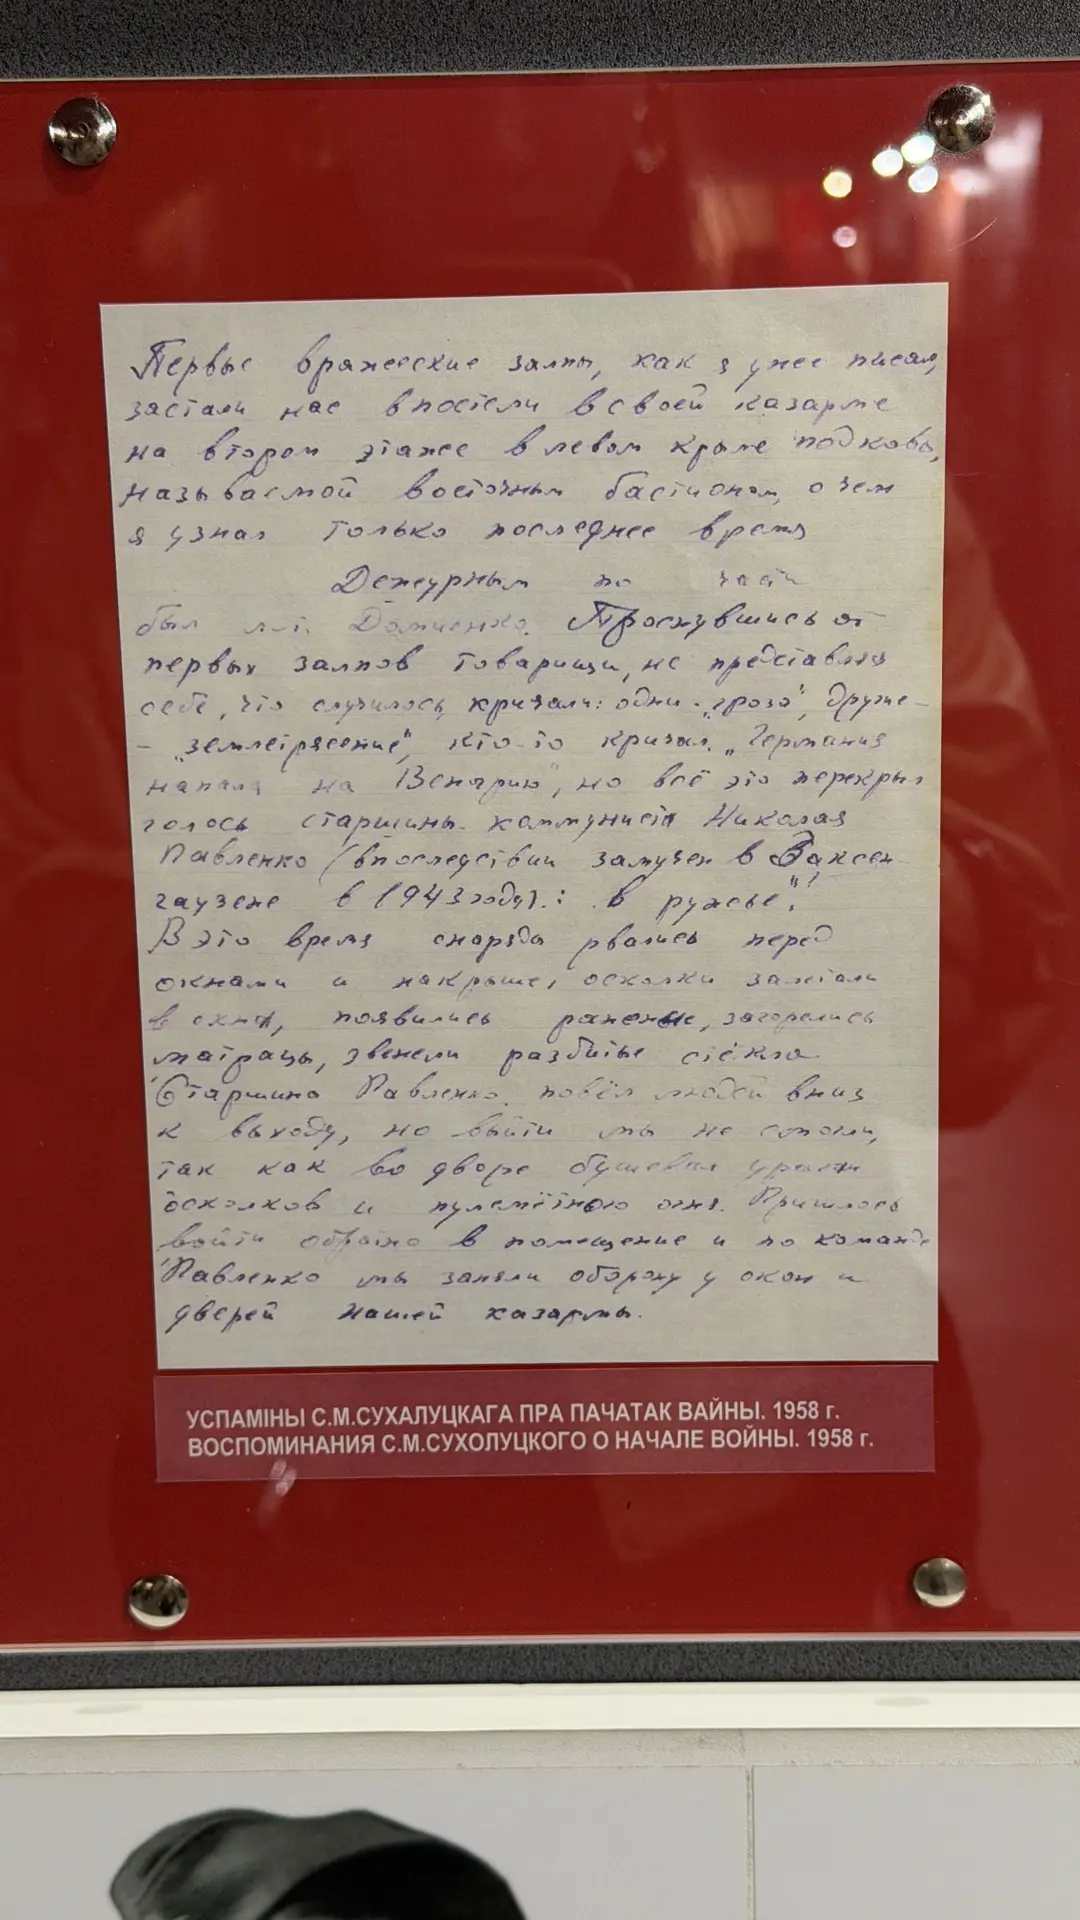 Первые вражеские залпы, как я уже писал,
застали нас в постели в своей казарме
на втором этаже в левом крыле подковы,
называемой восточным бастионом, о чем
я узнал только последнее время
Дежурным по части
был л-т. Домиенко. Проснувшись от
первых залпов товарищи, не представляя
себе, что случилось, кричали: одни - „гроза", друже-
- „землетрясение", кто-то кричал „Германия
напала на Венгрию", но всё это перекрыл
голос старшины - коммуниста Николая
Павленко (впоследствии замучен в Заксен
гаузене в 1943 году).: в ружье"!
В это время снаряды рвались перед
окнами и на крыше, осколки залетали
в окна, появились раненые, загорелись
матрацы, звенели разбитые стёкла
Старшина Павленко повёл людей вниз
к выходу, но выйти мы не смогли,
так как во дворе бушевал ураган
осколков и пулемётного огня. Пришлось
войти обратно в помещение и по команде
Павленко мы заняли оборону у окон и
дверей нашей казармы.
УСПАМІНЫ С.М.СУХАЛУЦКАГА ПРА ПАЧАТАК ВАЙНЫ. 1958 г.
ВОСПОМИНАНИЯ С.М.СУХОЛУЦКОГО О НАЧАЛЕ ВОЙНЫ. 1958 г.